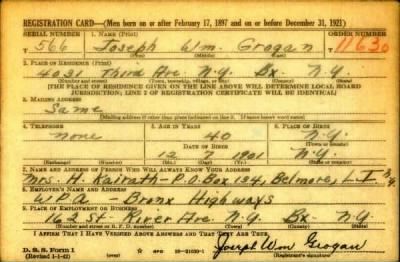 REGISTRATION CARD—(Men born on or after February 17, 1897 and on or before December 31, 1921)
SERIAL NUMBER 1. NAME (Print) ORDER NUMBER
U 566 Joseph Wm. Grogan 11630
(First) (Middle) (Last)
2. PLACE OF RESIDENCE (Print)
4021 Third Ave. N.Y. Bx. N.Y.
(Number and street) (Town, township, village, or city) (County) (State)
[THE PLACE OF RESIDENCE GIVEN ON THE LINE ABOVE WILL DETERMINE LOCAL BOARD
JURISDICTION; LINE 2 OF REGISTRATION CERTIFICATE WILL BE IDENTICAL]
3. MAILING ADDRESS
Same
[Mailing address if other than place indicated on line 2. If same insert word same]
4. TELEPHONE 5. AGE IN YEARS 6. PLACE OF BIRTH
none 40 N.Y.
DATE OF BIRTH (Town or county)
12 7 1901 N.Y.
(Exchange) (Number) (Mo.) (Day) (Yr.) (State or country)
7. NAME AND ADDRESS OF PERSON WHO WILL ALWAYS KNOW YOUR ADDRESS
Mrs. H. Rairath - P.O. Box 134, Belmore, L.I. N.Y.
8. EMPLOYER'S NAME AND ADDRESS
W.P.A. - Bronx Highways
9. PLACE OF EMPLOYMENT OR BUSINESS
162 St. River Ave. N.Y. Bx - N.Y.
(Number and street or R. F. D. number) (Town) (County) (State)
I AFFIRM THAT I HAVE VERIFIED ABOVE ANSWERS AND THAT THEY ARE TRUE.
D. S. S. Form 1 GPO 16—21630-1 Joseph Wm Grogan
(Revised 1-1-42) (over) (Registrant's signature)